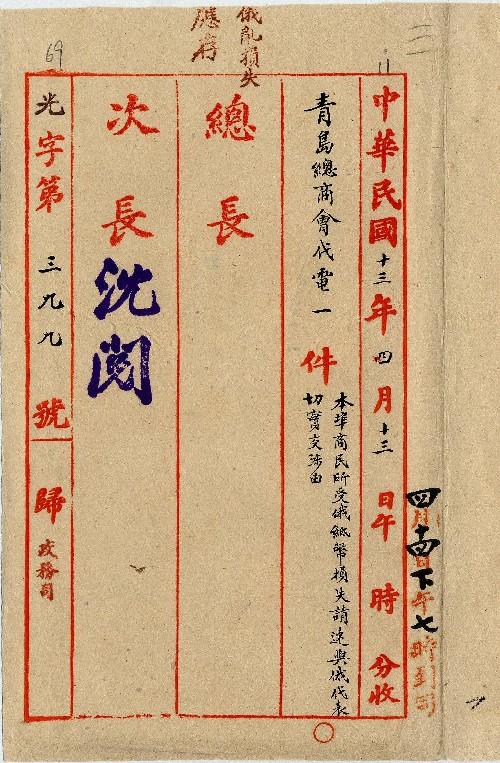 俄亂損失
應存
69
11
中華民國十三年四月十三日午時分收
青島總商會代電一件
本埠商民所受俄紙幣損失請速與俄代表
切實交涉由
總長
次長
沈閱
光字第三九九號歸政務司
四月十四日下午七時到司